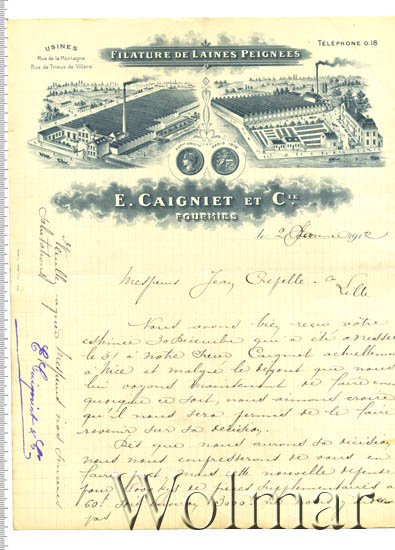 USINES
Rue de la Montagne
Rue de Trieux de Villers
FILATURE DE LAINES PEIGNÉES
TÉLÉPHONE 0.18
PARIS 1878
E. CAIGNIET ET Cie
FOURMIES
le 2 1912
Messieurs Jean Crepelle
Lille
Nous avons bien reçu votre
30 décembre qui a été adressée
le 31 à notre Sieur Caigniet actuellement
à Nice et malgré le dégout que nous
lui voyons maintenant de faire
quoique ce soit, nous aimons croire
qu'il nous sera permis de le faire
revenir sur sa décision.
Dès que nous aurons sa décision
nous nous empresserons de vous en
faire part, mais cette nouvelle
pour de pièces supplémentaires à
60f soit 3000f
pas
Veuillez agréer Messieurs nos sincères
salutations
E Caigniet & Cie
Wolmar